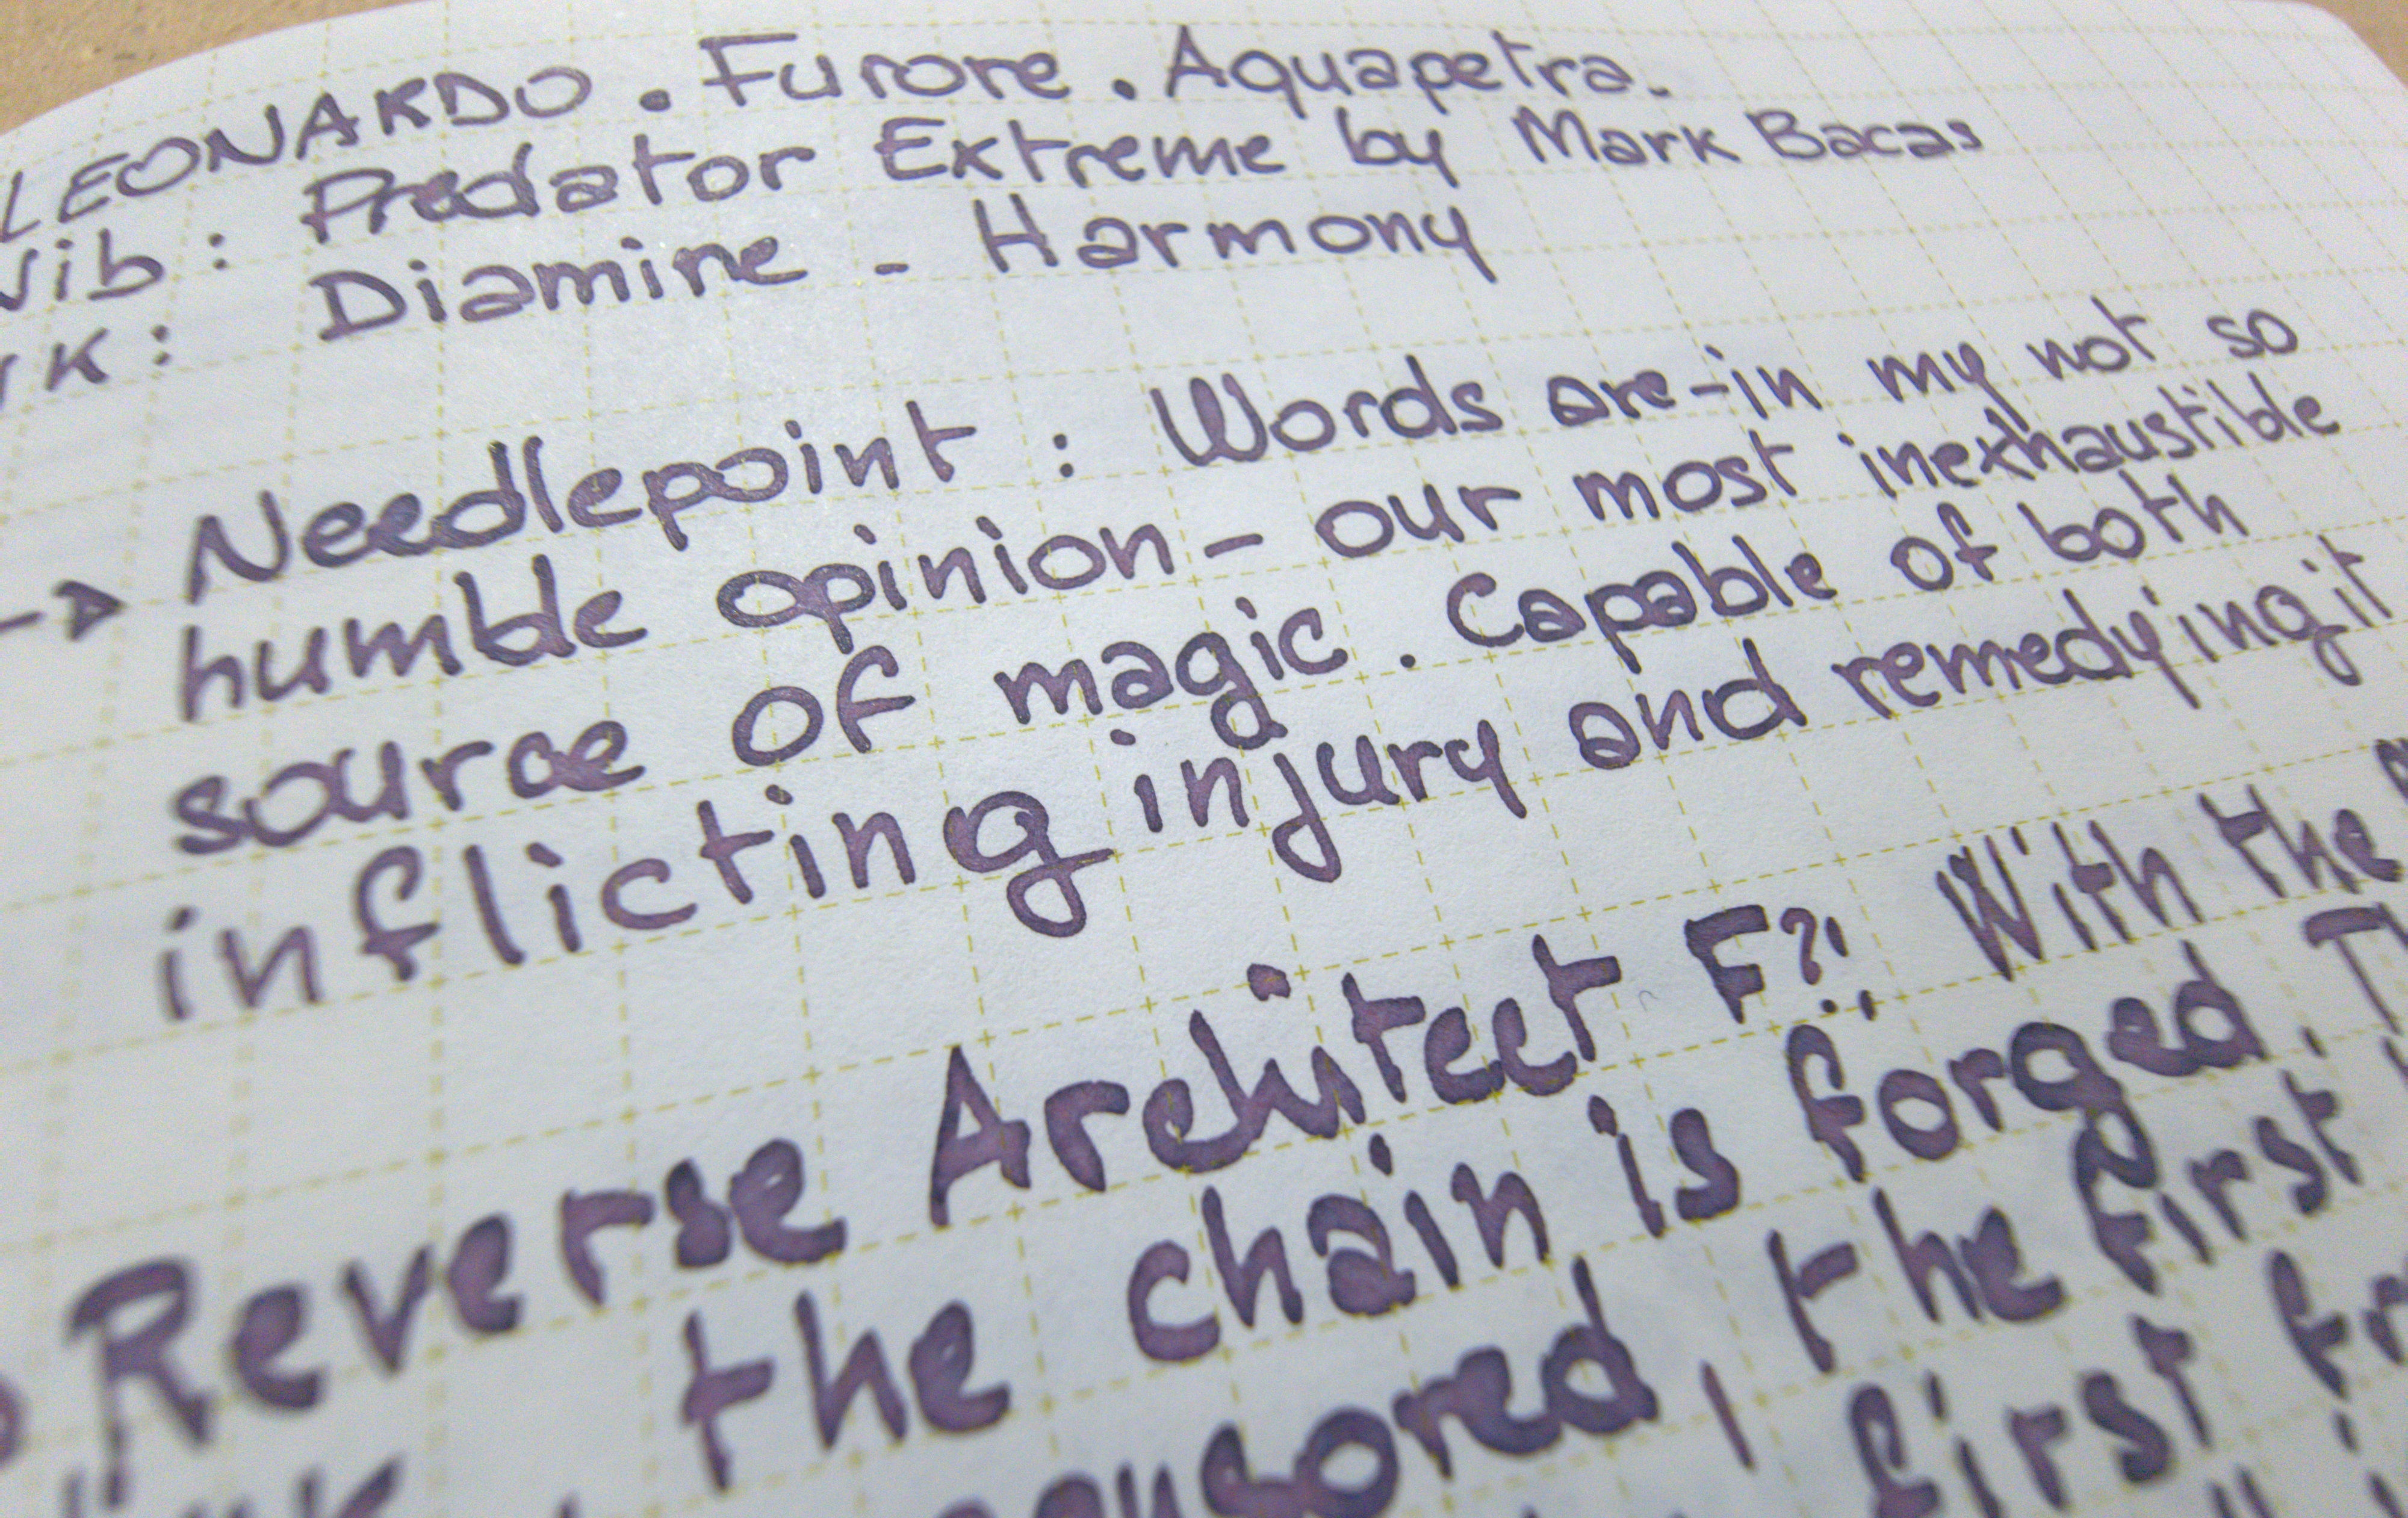 LEONARDO . Furore . Aquapetra.
Nib : Predator Extreme by Mark Bacas
: Diamine - Harmony
Needlepoint : Words are-in my not so
humble opinion - our most inexhaustible
source of magic . Capable of both
inflicting injury and remedying it
Reverse Architect F?! With the
the chain is forged. T
censored, the first
first